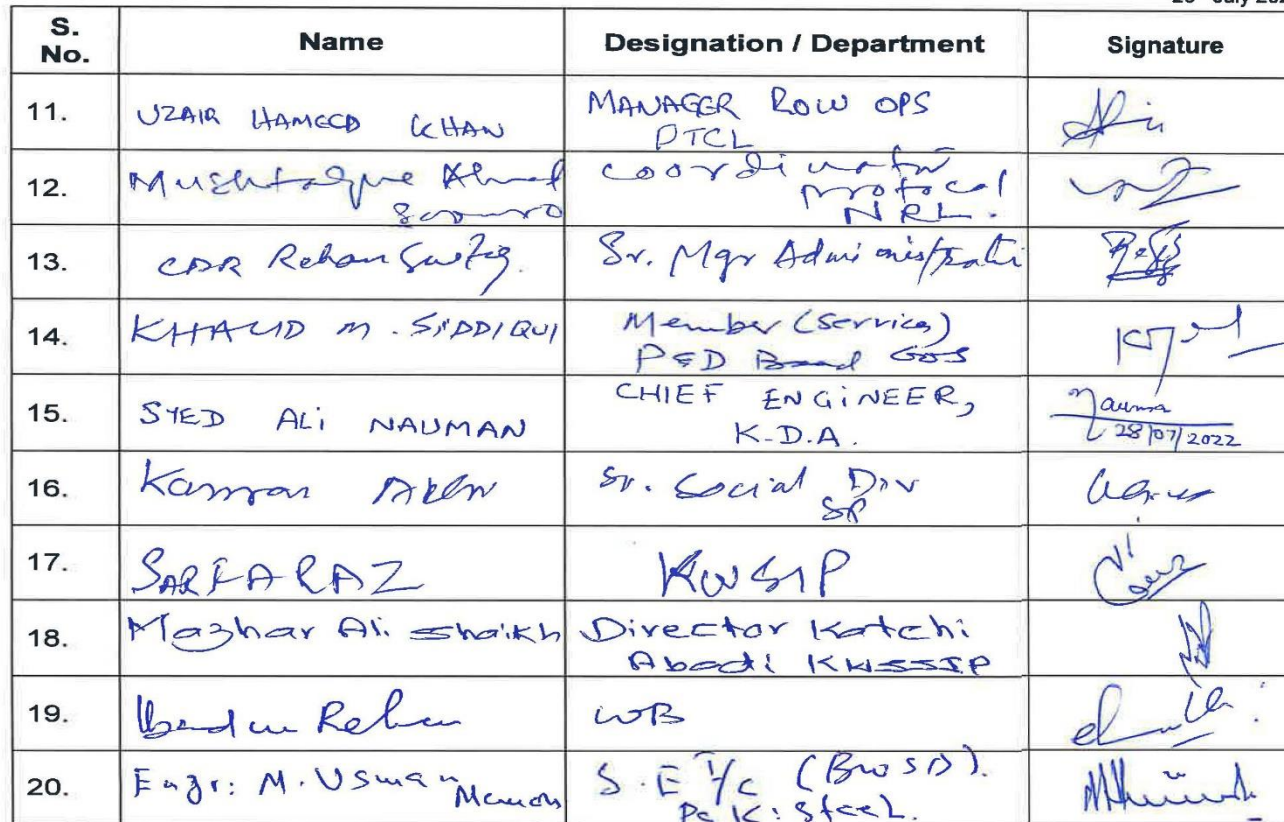 July 202
S. No. Name Designation / Department Signature
11. UZAIR HAMEED KHAN MANAGER ROW OPS
PTCL
12. Mushtaque Ahmed Coordinator
Soomro protocol
NRL.
13. CDR Rehan Sr. Mgr
14. KHALID M. SIDDIQUI Member (Services)
P&D Board GOS
15. SYED ALi NAUMAN CHIEF ENGiNEER,
K.D.A.
Nauman
28/07/2022
16. Kamran Sr. Social Dev
SP
17. SARFARAZ KWSIP
18. Mazhar Ali Shaikh Director Katchi
Abadi KWSSIP
19. WB
20. Engr: M. Usman Memon S.E I/c
Pak: Steel.